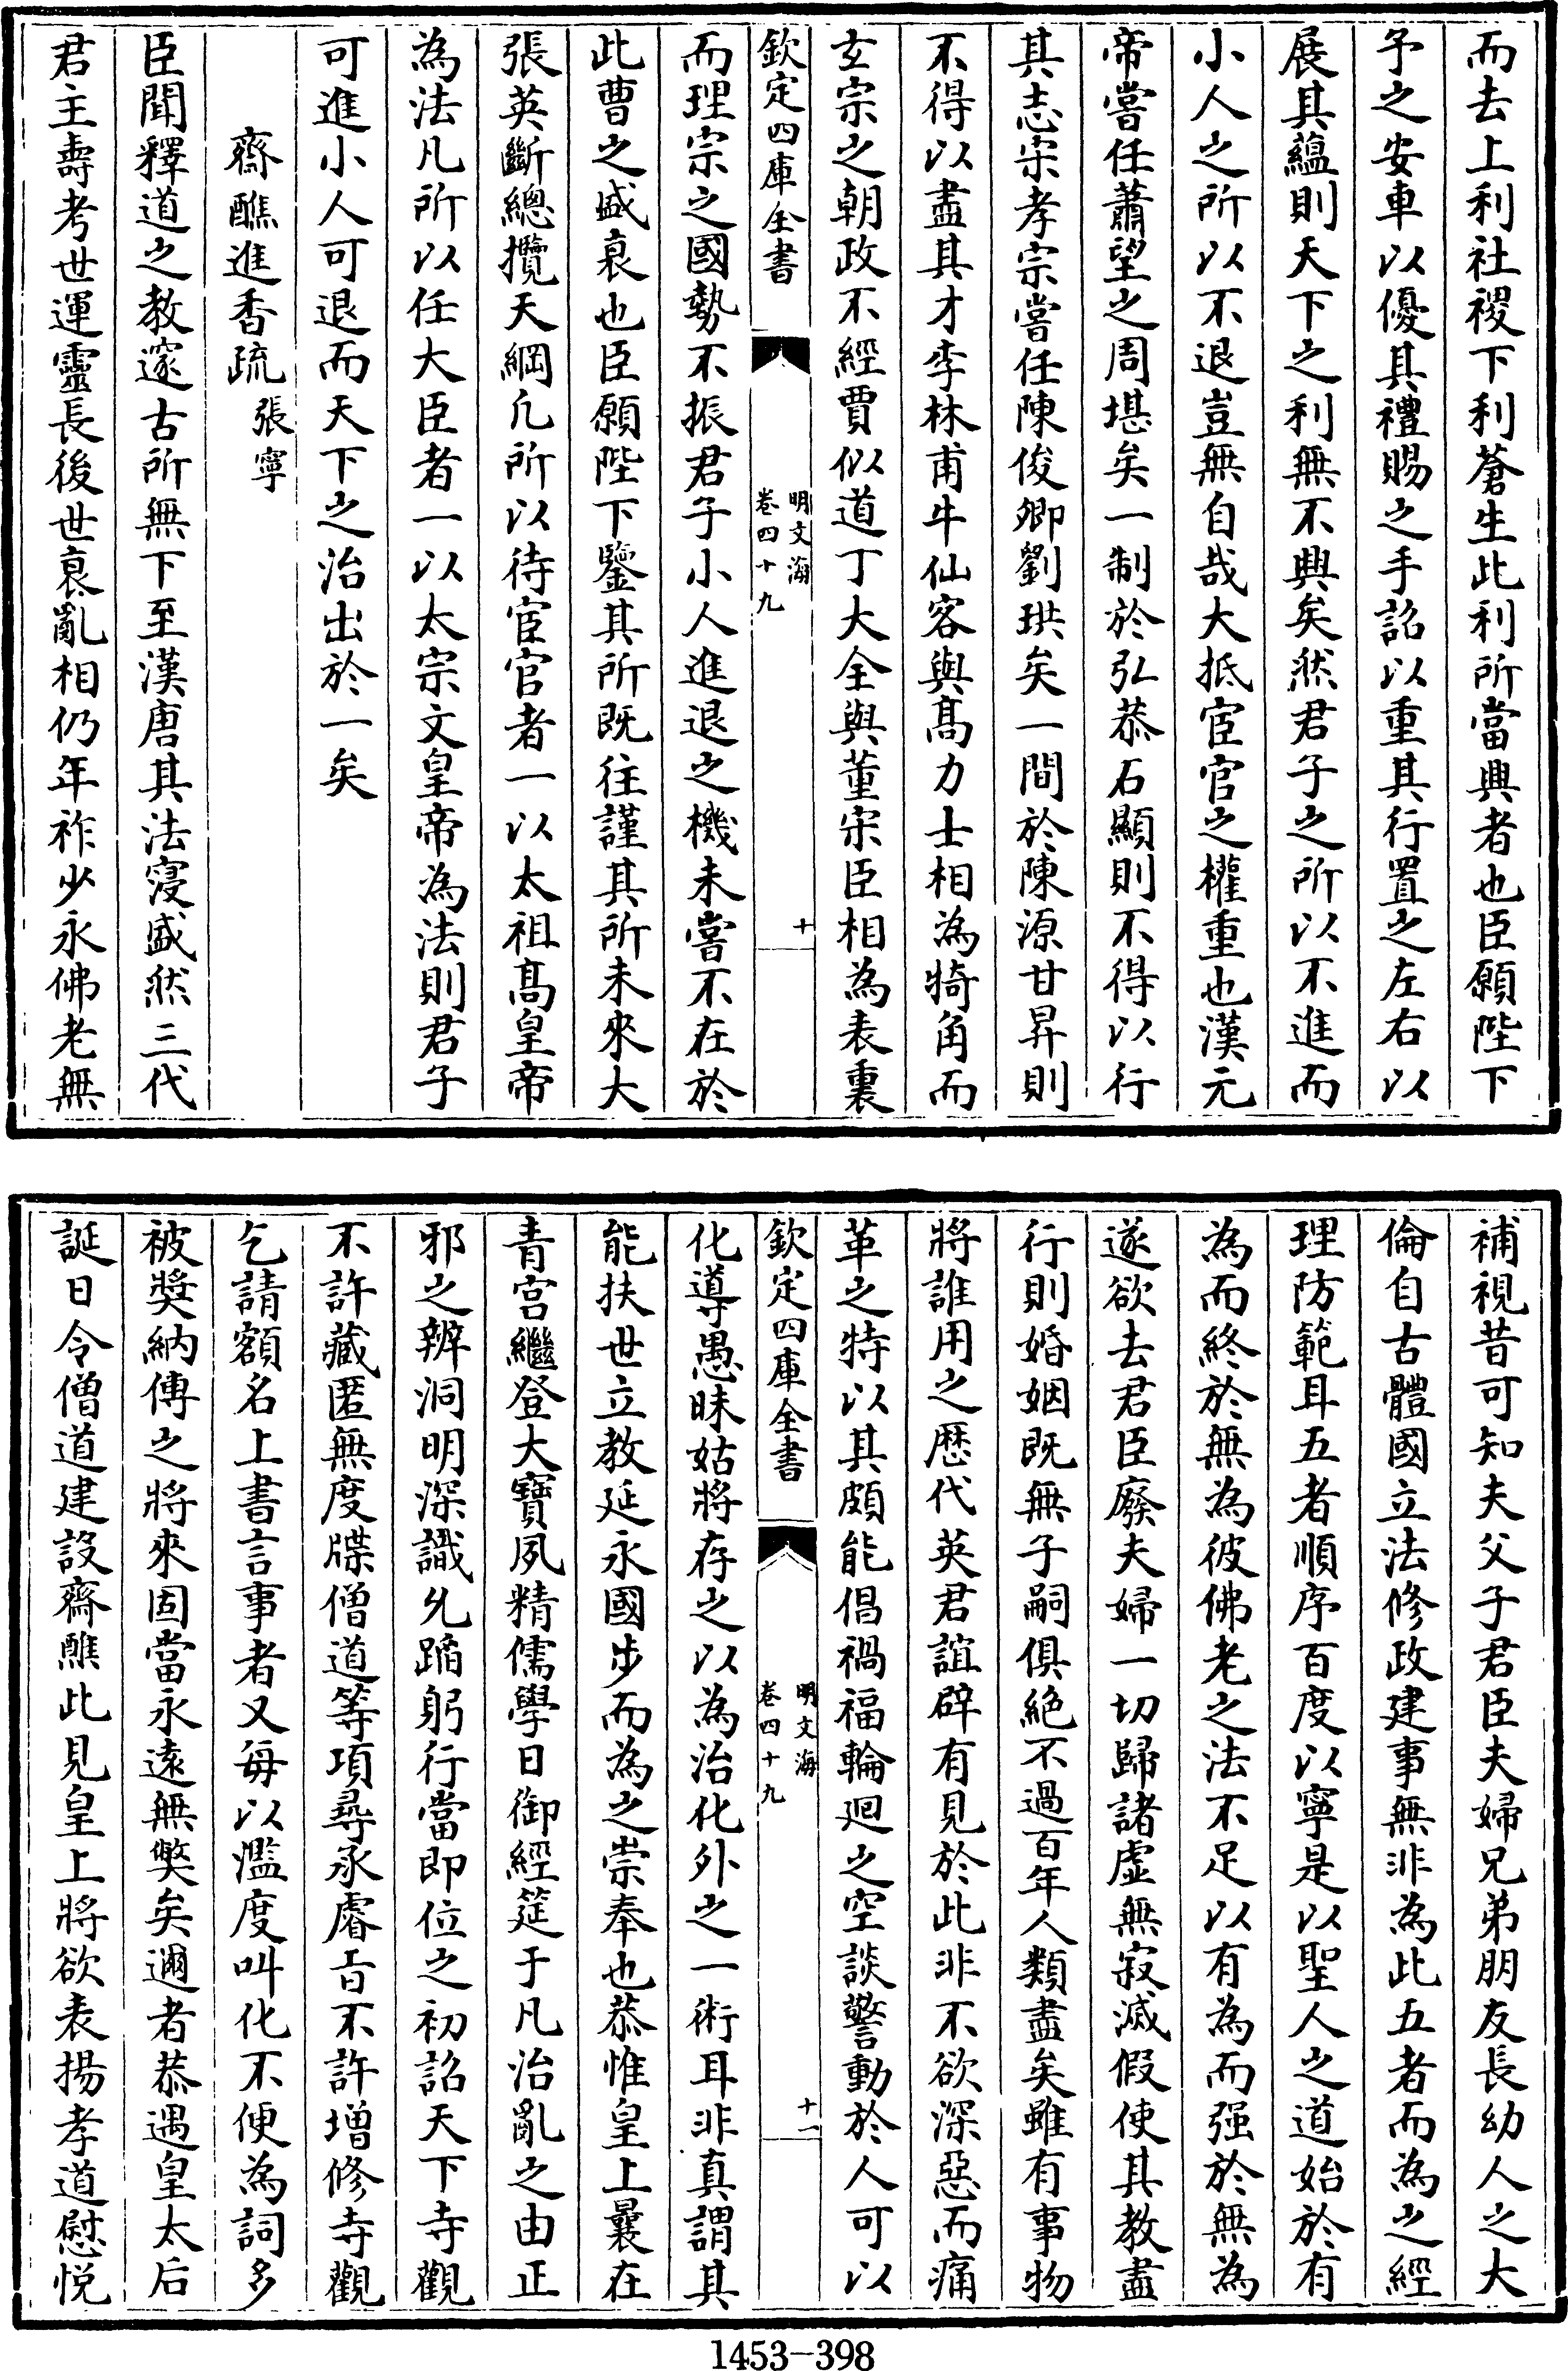 而去上利社稷下利蒼生此利所當興者也臣願陛下
予之安車以優其禮賜之手詔以重其行置之左右以
展其蘊則天下之利無不興矣然君子之所以不進而
小人之所以不退豈無自哉大抵宦官之權重也漢元
帝嘗任蕭望之周堪矣一制於弘恭石顯則不得以行
其志宋孝宗嘗任陳俊卿劉珙矣一間於陳源甘昇則
不得以盡其才李林甫牛仙客與髙力士相為犄角而
玄宗之朝政不經賈似道丁大全與董宋臣相為表裏
欽定四庫全書
明文海
卷四十九
十
而理宗之國勢不振君子小人進退之機未嘗不在於
此曹之盛衰也臣願陛下鑒其所既往謹其所未來大
張英斷總攬天綱凡所以待宦官者一以太祖髙皇帝
為法凡所以任大臣者一以太宗文皇帝為法則君子
可進小人可退而天下之治出於一矣
齋醮進香疏 張寧
臣聞釋道之教邃古所無下至漢唐其法寖盛然三代
君主壽考世運靈長後世衰亂相仍年祚少永佛老無
補視昔可知夫父子君臣夫婦兄弟朋友長幼人之大
倫自古體國立法修政建事無非為此五者而為之經
理防範耳五者順序百度以寧是以聖人之道始於有
為而終於無為彼佛老之法不足以有為而强於無為
遂欲去君臣廢夫婦一切歸諸虛無寂滅假使其教盡
行則婚姻既無子嗣俱絕不過百年人類盡矣雖有事物
將誰用之歴代英君誼辟有見於此非不欲深惡而痛
革之特以其頗能倡禍福輪迴之空談警動於人可以
欽定四庫全書
明文海
卷四十九
十一
化導愚昧姑將存之以為治化外之一術耳非真謂其
能扶世立教延永國步而為之崇奉也恭惟皇上曩在
青宫繼登大寶夙精儒學日御經筵于凡治亂之由正
邪之辨洞明深識允蹈躬行當即位之初詔天下寺觀
不許藏匿無度牒僧道等項尋承睿旨不許增修寺觀
乞請額名上書言事者又每以濫度叫化不便為詞多
被奬納傳之將來固當永遠無弊矣邇者恭遇皇太后
誕日令僧道建設齋醮此見皇上將欲表揚孝道慰悦
1453-398